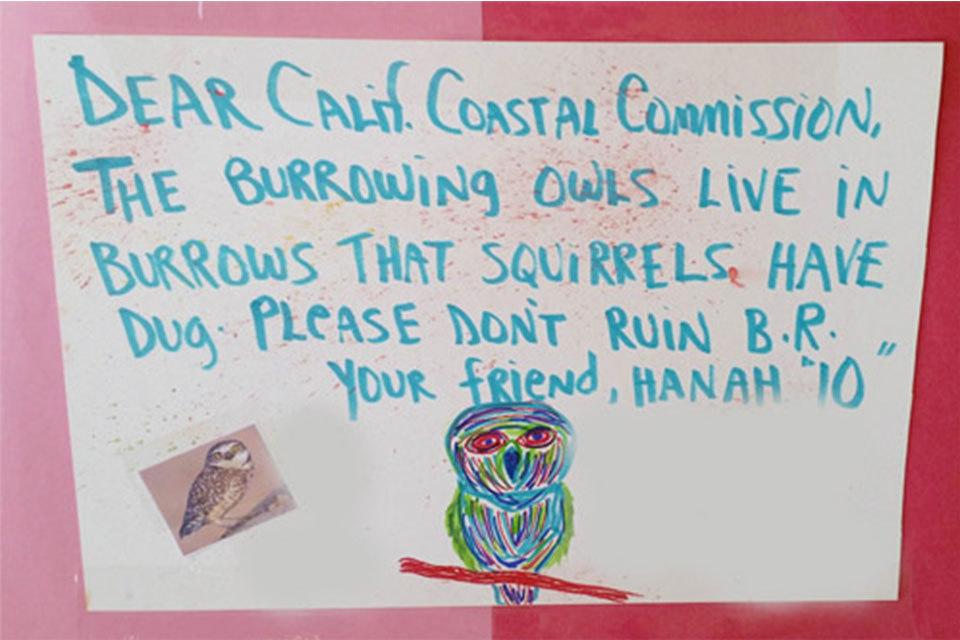 DEAR CALIF. COASTAL COMMISSION,
THE BURROWING OWLS LIVE IN
BURROWS THAT SQUIRRELS HAVE
DUG. PLEASE DON'T RUIN B.R.
YOUR friend, HANAH "10"